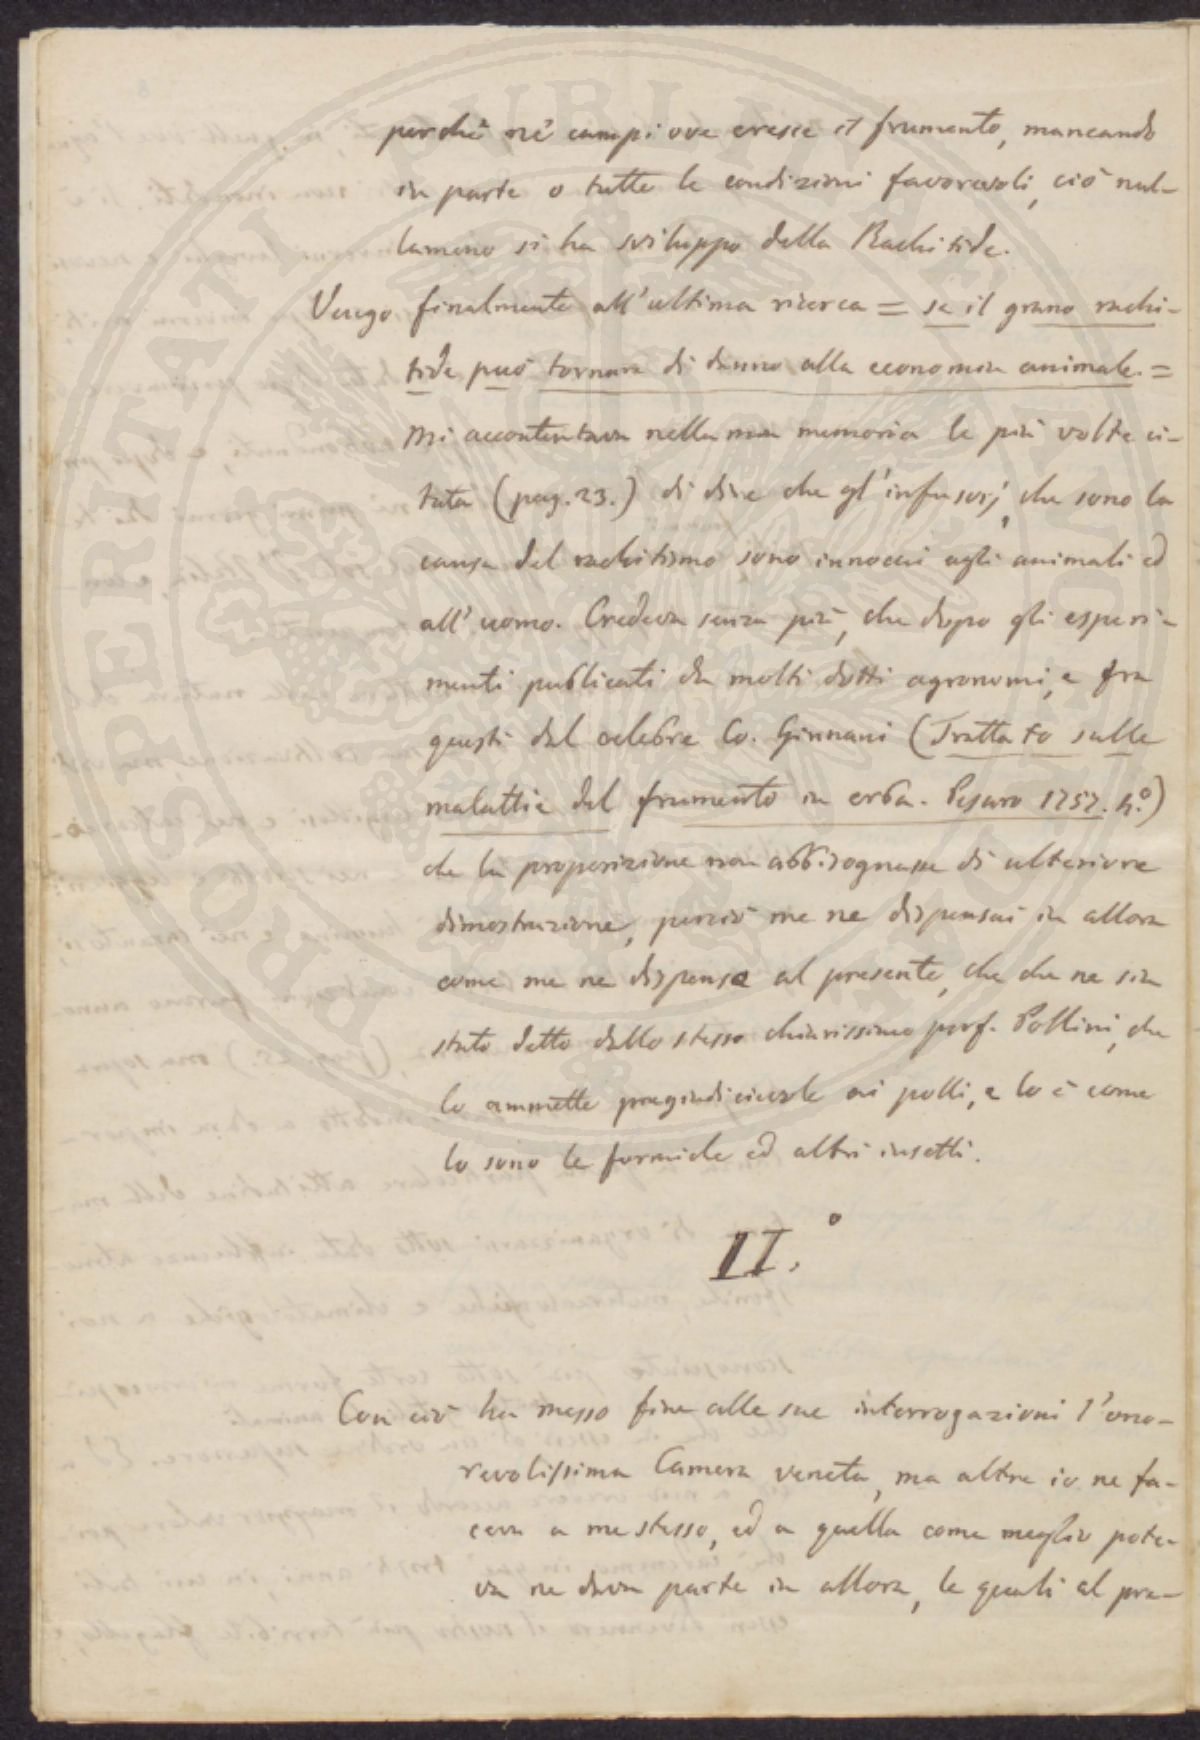 perchè ne' campi ove cresce il frumento, mancando
in parte o tutte le condizioni favorevoli, ciò nul-
lameno si ha sviluppo della Rachitide.
Vengo finalmente all'ultima ricerca = se il grano rachi-
tide può tornare di danno alla economia animale. =
Mi accontentava nella mia memoria le più volte ci-
tata (pag. 23.) di dire che gl'infusorj, che sono la
causa del rachitismo sono innocui agli animali ed
all'uomo. Credeva senza più, che dopo gli esperi-
menti publicati da molti dotti agronomi, e fra
questi dal celebre Co. Ginnani (Trattato sulle
malattie del frumento in erba. Pesaro 1757. 4.°)
che la proposizione non abbisognasse di ulteriore
dimostrazione, perciò me ne dispensai in allora
come me ne dispenso al presente, che che ne sia
stato detto dallo stesso chiarissimo prof. Pollini, che
lo ammette pregiudicievole ai polli, e lo è come
lo sono le formiche ed altri insetti.
II.°
Con ciò ha messo fine alle sue interrogazioni l'ono-
revolissima Camera veneta, ma altre io ne fa-
ceva a me stesso, ed a quella come meglio pote-
va ne dava parte in allora, le quali al pre-
PROSPERITATI PUBLICAE